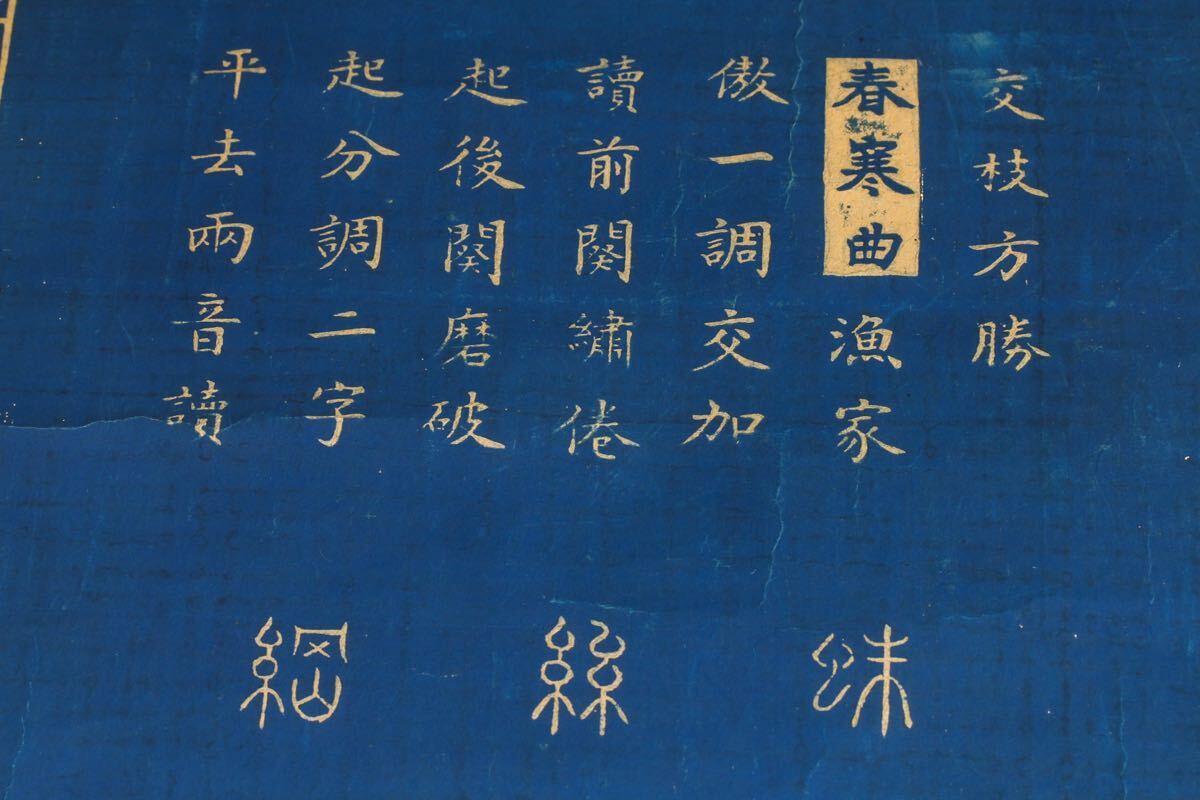 交枝方勝
春寒曲漁家
傲一調交加
讀前闋繡倦
起後闋磨破
起分調二字
平去兩音讀
蛛絲網